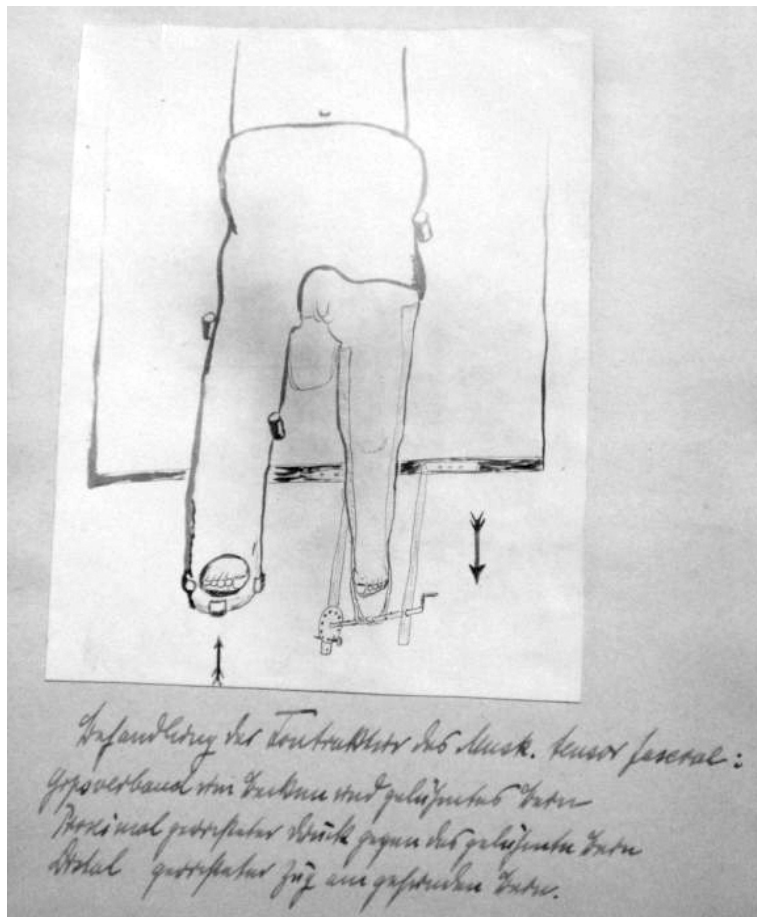 Behandlung der Kontraktur des Musk. tensor fasciae:
Gipsverband um Becken und gelähmtes Bein
Proximal gerichteter Druck gegen das gelähmte Bein
Distal gerichteter Zug am gesunden Bein.